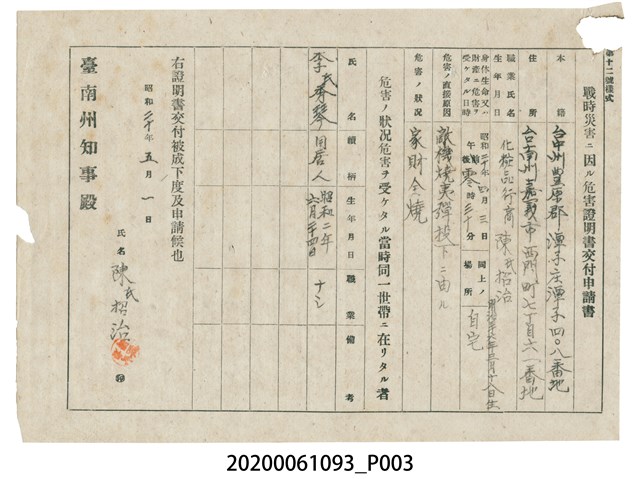 第十二號樣式
戰時災害ニ因ル危害證明書交付申請書
本籍 台中州豐原郡潭子庄潭子四〇八番地
住所 台南州嘉義市西門町七丁目六一番地
職業氏名 化粧品行商 陳氏招治
生年月日 明治
身体生命又ハ財產ニ危害ヲ受ケタル日時 昭和二十年四月三日 午前後零時三十分
同上ノ場所 自宅
危害ノ直接原因 敵機燒夷彈投下ニ由ル
危害ノ狀況 家財全燒
危害ノ狀況危害ヲ受ケタル當時同一世帶ニ在リタル者
氏名 續柄 生年月日 職業 備考
李氏秀琴 同居人 昭和二年六月二十四日 ナシ
右證明書交付被成下度及申請候也
昭和二十年五月一日
氏名 陳氏招治 ㊞
臺南州知事殿
20200061093_P003